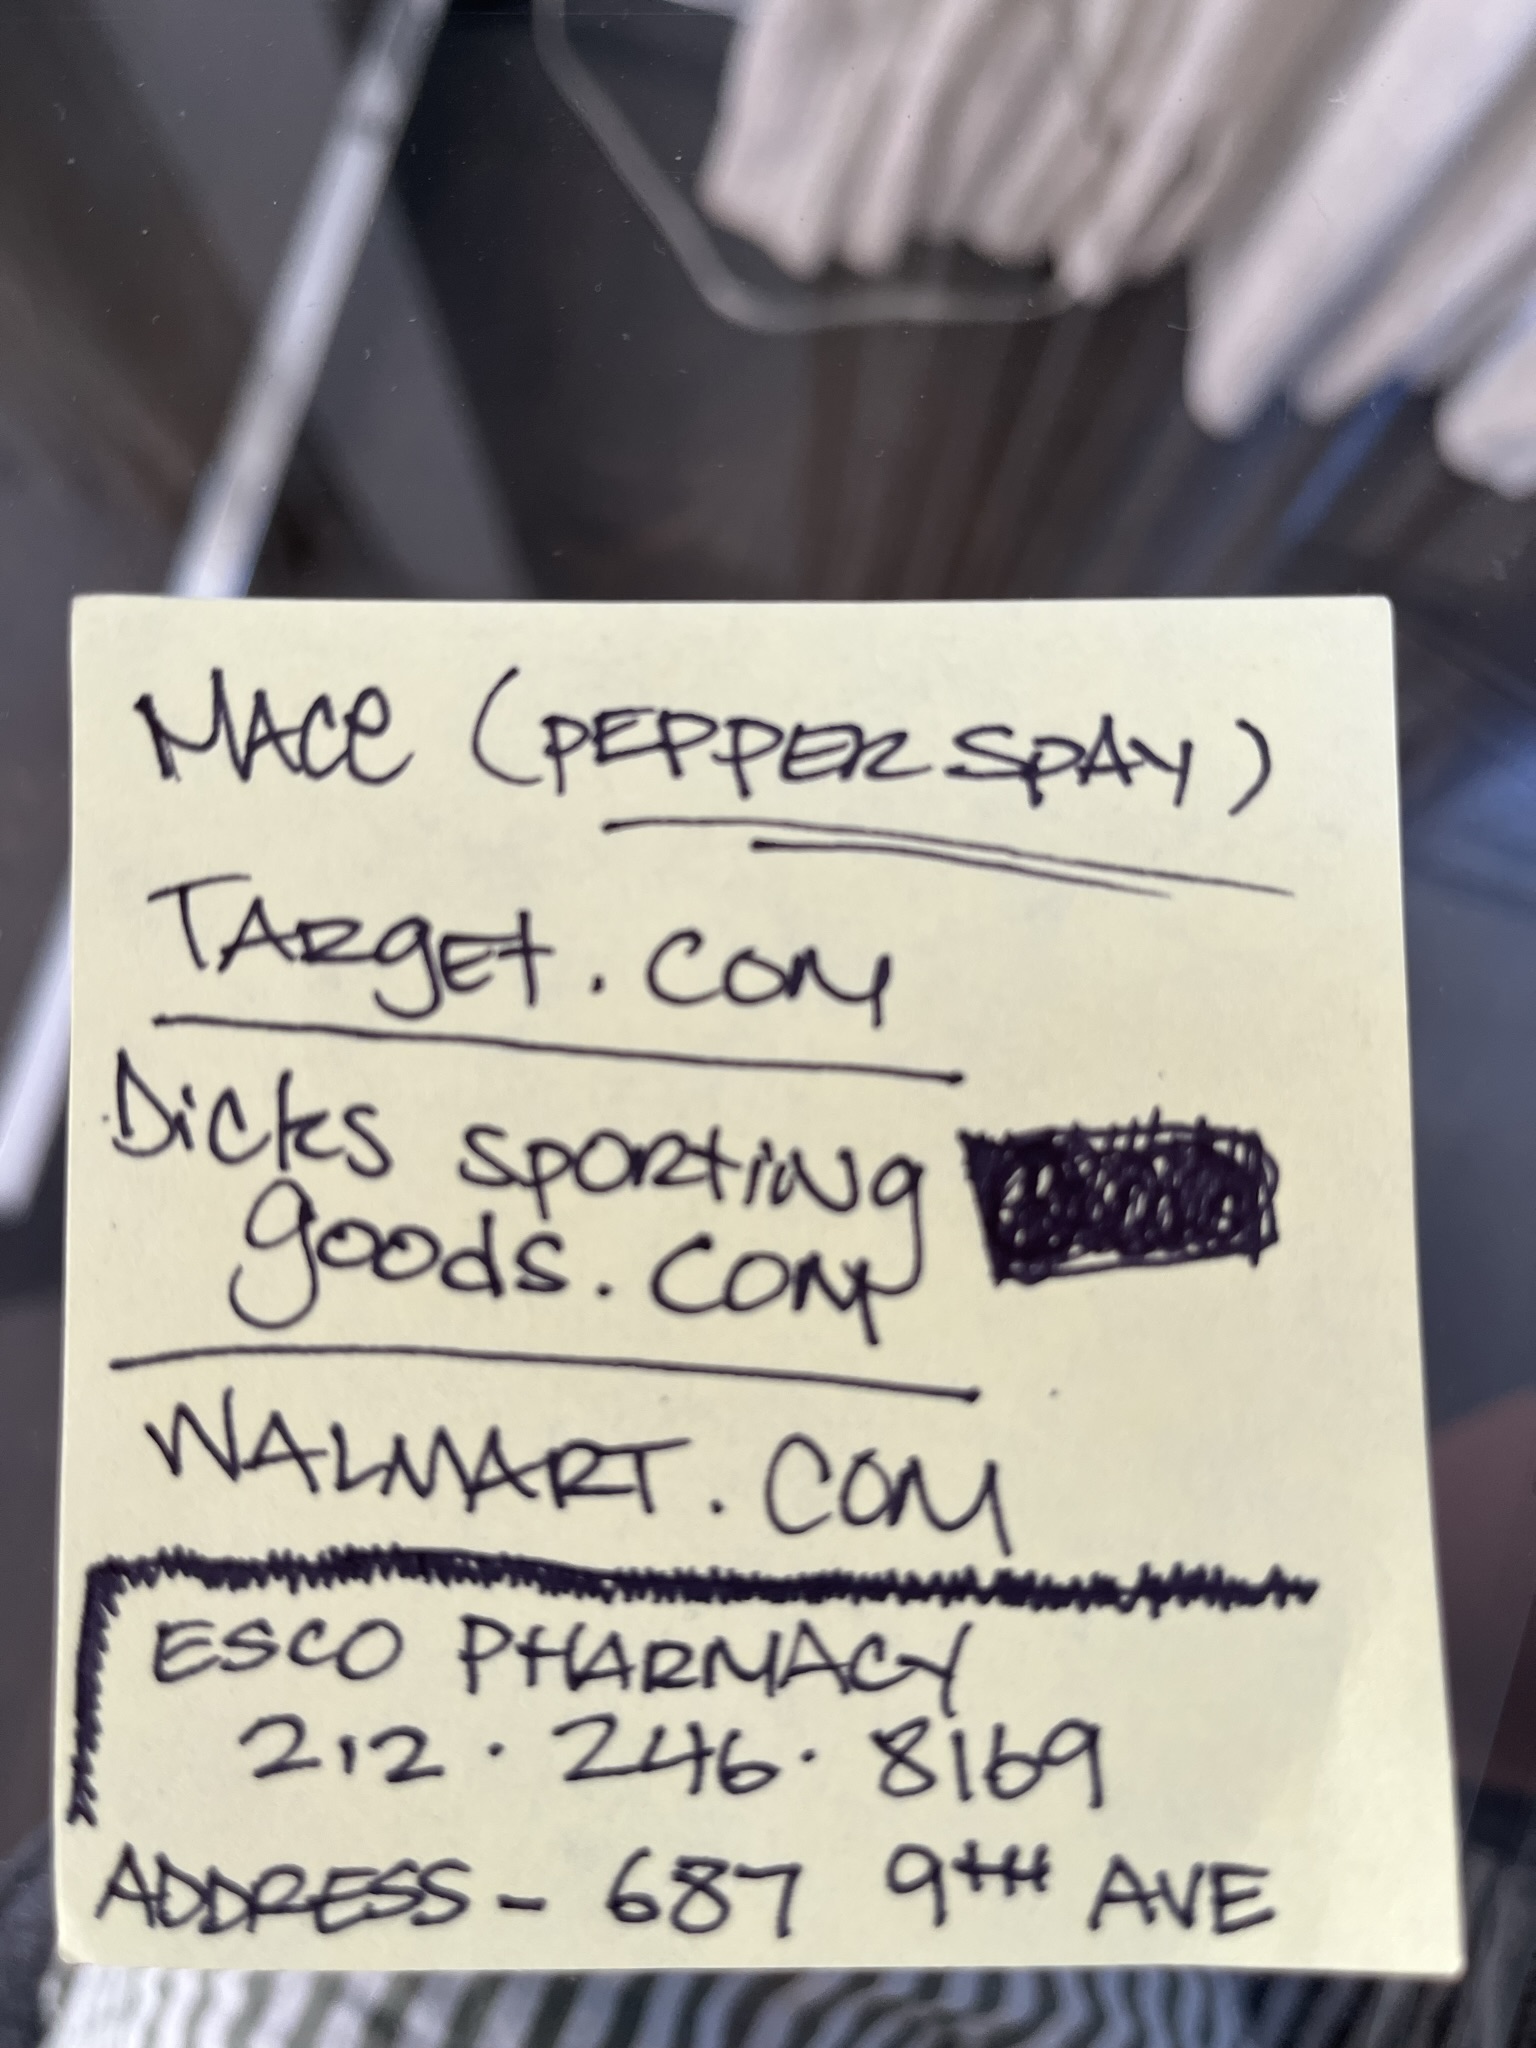 MACE (PEPPER SPAY)
TARgET. COM
Dicks SPORtiNg
goods. COM
WALMART. COM
ESCO PHARMACY
212 · 246 · 8169
ADDRESS - 687 9TH AVE